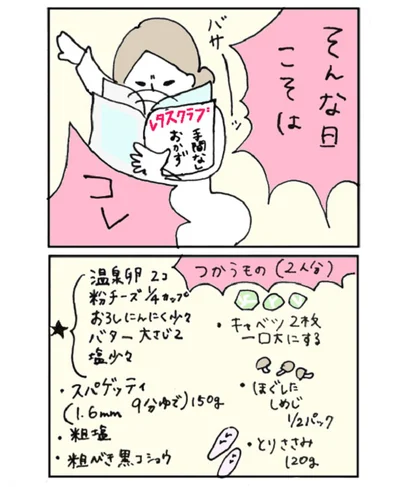 そんな日
こそは
バサーッ
レタスクラブ
手間なし
おかず
コレ
つかうもの(2人分)
★
温泉卵 2コ
粉チーズ 1/4カップ
おろしにんにく少々
バター 大さじ2
塩少々
・スパゲッティ
(1.6mm 9分ゆで)150g
・粗塩
・粗びき黒コショウ
・キャベツ2枚
一口大にする
・ほぐした
しめじ
1/2パック
・とりささみ
120g